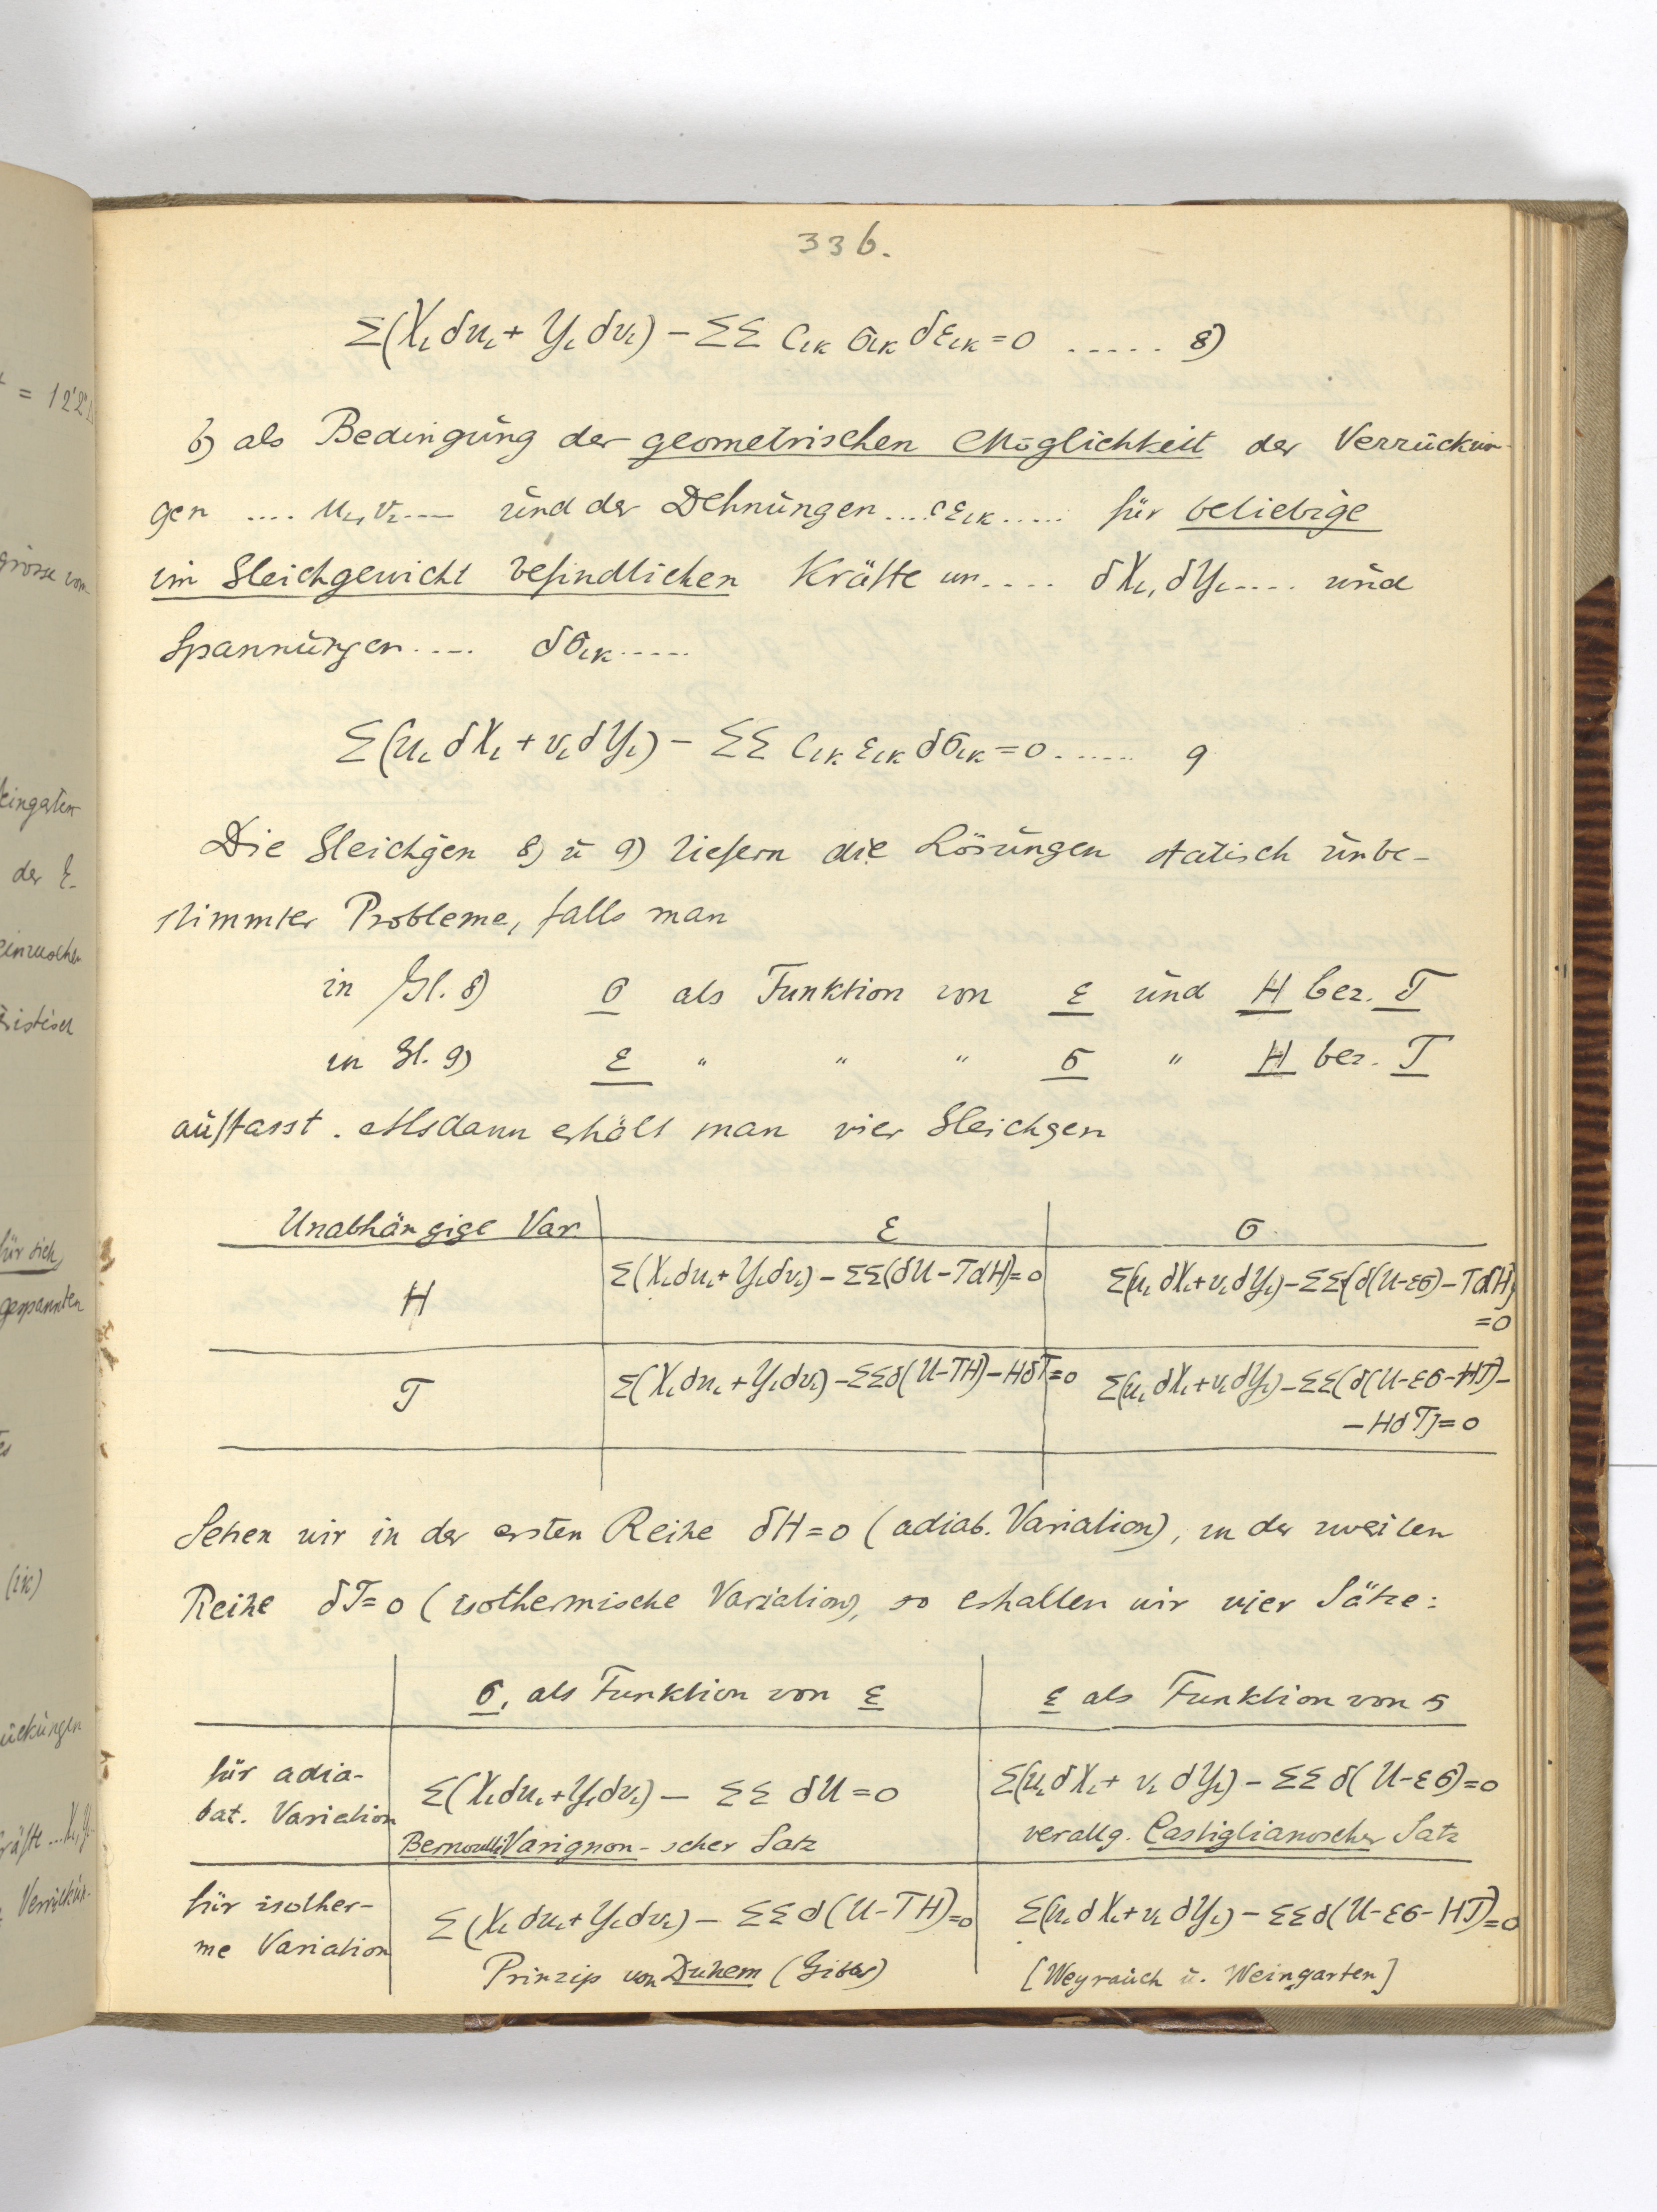 336.
Σ(Xᵢ δuᵢ + Yᵢ δvᵢ) − ΣΣ cᵢₖ σᵢₖ δεᵢₖ = 0 ..... 8)
b) als Bedingung der geometrischen Möglichkeit der Verrückun-
gen .... uᵢ, vᵢ .... und der Dehnungen .... εᵢₖ ..... für beliebige
im Gleichgewicht befindlichen Kräfte .... δXᵢ, δYᵢ .... und
Spannungen .... δσᵢₖ .....
Σ(uᵢ δXᵢ + vᵢ δYᵢ) − ΣΣ cᵢₖ εᵢₖ δσᵢₖ = 0 ...... 9
Die Gleichgen 8) u 9) liefern die Lösungen statisch unbe-
stimmter Probleme, falls man
in Gl. 8) σ als Funktion von ε und H bez. T
in Gl. 9) ε " " " σ " H bez. T
auffasst. Alsdann erhält man vier Gleichgen
Unabhängige Var. ε σ
H Σ(Xᵢδuᵢ + Yᵢδvᵢ) − ΣΣ(δU − TδH) = 0 Σ(uᵢ δXᵢ + vᵢ δYᵢ) − ΣΣ{δ(U−εσ) − TδH}
= 0
T Σ(Xᵢδuᵢ + Yᵢδvᵢ) − ΣΣδ(U−TH) − HδT = 0 Σ(uᵢ δXᵢ + vᵢ δYᵢ) − ΣΣ(δ(U−εσ−HT) −
− HδT) = 0
Setzen wir in der ersten Reihe δH = 0 (adiab. Variation), in der zweiten
Reihe δT = 0 (isothermische Variation), so erhalten wir vier Sätze:
σ, als Funktion von ε ε als Funktion von σ
für adia-
bat. Variation Σ(Xᵢδuᵢ + Yᵢδvᵢ) − ΣΣ δU = 0 Σ(uᵢ δXᵢ + vᵢ δYᵢ) − ΣΣ δ(U−εσ) = 0
Bernoulli Varignon-scher Satz verallg. Castiglianoscher Satz
für isother-
me Variation Σ(Xᵢ δuᵢ + Yᵢδvᵢ) − ΣΣ δ(U−TH) = 0 Σ(uᵢ δXᵢ + vᵢ δYᵢ) − ΣΣδ(U−εσ−HT) = 0
Prinzip von Duhem (Gibbs) [Weyrauch u. Weingarten]